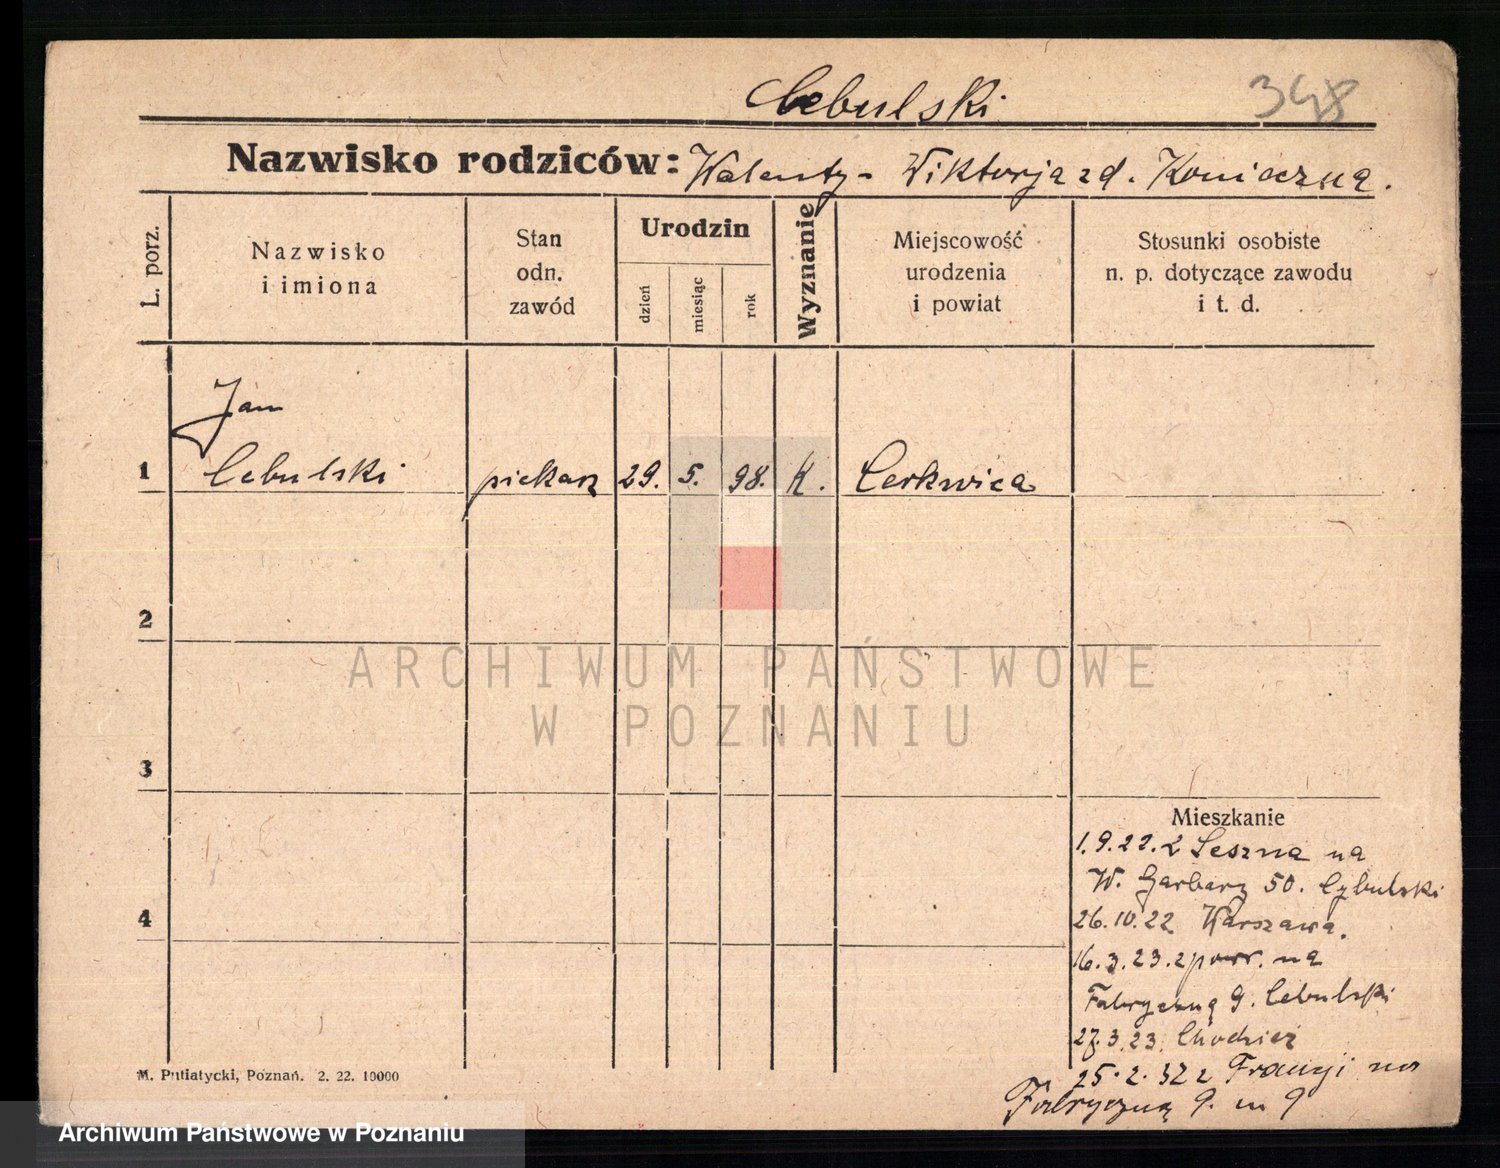 Cebulski 398
Nazwisko rodziców: Walenty - Wiktorja zd. Konieczna.
L. porz.
Nazwisko
i imiona
Stan
odn.
zawód
Urodzin
dzień
miesiąc
rok
Wyznanie
Miejscowość
urodzenia
i powiat
Stosunki osobiste
n. p. dotyczące zawodu
i t. d.
Jan
1 Cebulski piekarz 29. 5. 98. K. Cerkwica
2
3
4
Mieszkanie
1.9.22. z Leszna na
W. Garbary 50. Cybulski
26.10.22 Warszawa.
16.3.23. z powr. na
Fabryczną 9. Cebulski
27.3.23. Chodzież
25.2.32 z Francji na
Fabryczną 9. m 9
M. Putiatycki, Poznań. 2. 22. 10000
ARCHIWUM PAŃSTWOWE
W POZNANIU
Archiwum Państwowe w Poznaniu